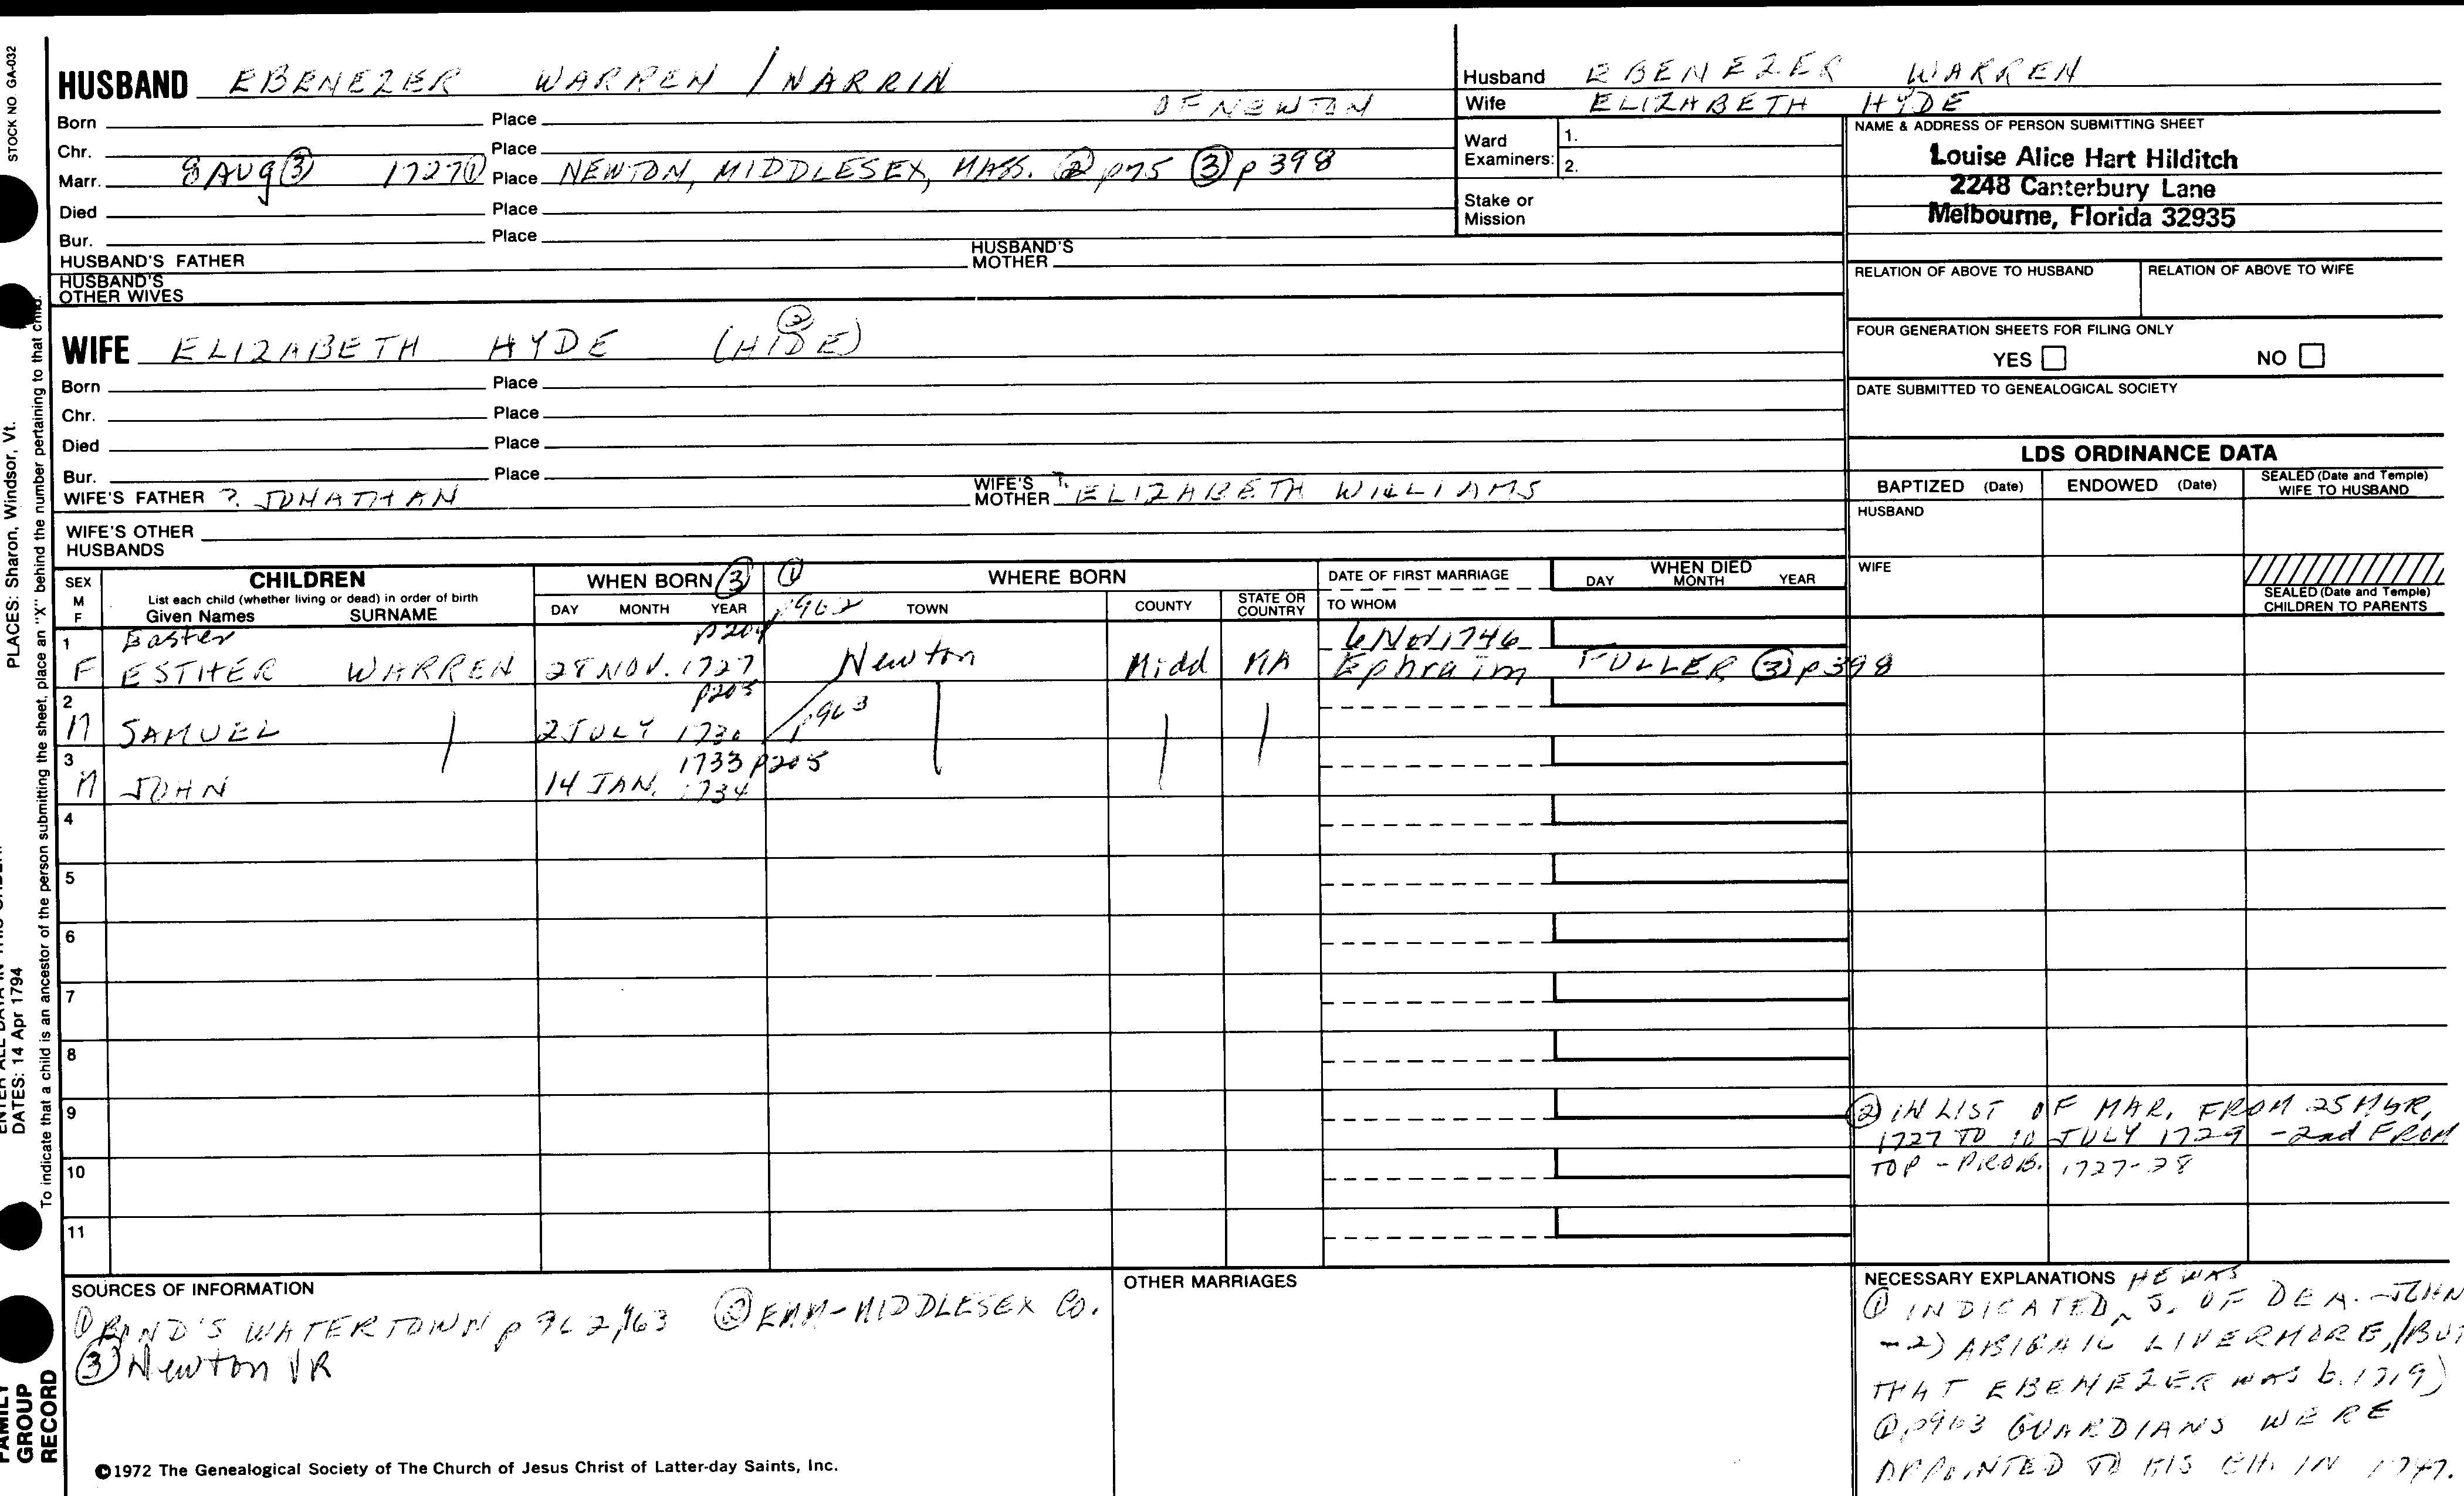 STOCK NO GA-032
HUSBAND EBENEZER WARREN / WARRIN
OF NEWTON
Born Place
Chr. Place
Marr. 8 AUG ③ 1727 ① Place NEWTON, MIDDLESEX, MASS. ② p75 ③ p 398
Died Place
Bur. Place
HUSBAND'S FATHER HUSBAND'S MOTHER
HUSBAND'S OTHER WIVES
Husband EBENEZER WARREN
Wife ELIZABETH HYDE
Ward Examiners: 1.
2.
Stake or Mission
NAME & ADDRESS OF PERSON SUBMITTING SHEET
Louise Alice Hart Hilditch
2248 Canterbury Lane
Melbourne, Florida 32935
RELATION OF ABOVE TO HUSBAND RELATION OF ABOVE TO WIFE
FOUR GENERATION SHEETS FOR FILING ONLY
YES NO
DATE SUBMITTED TO GENEALOGICAL SOCIETY
WIFE ELIZABETH HYDE (HIDE) ③
Born Place
Chr. Place
Died Place
Bur. Place
WIFE'S FATHER ? JONATHAN WIFE'S MOTHER ? ELIZABETH WILLIAMS
WIFE'S OTHER HUSBANDS
LDS ORDINANCE DATA
BAPTIZED (Date) ENDOWED (Date) SEALED (Date and Temple) WIFE TO HUSBAND
HUSBAND
WIFE
SEALED (Date and Temple) CHILDREN TO PARENTS
SEX M F
CHILDREN
List each child (whether living or dead) in order of birth
Given Names SURNAME
WHEN BORN ③ ①
DAY MONTH YEAR p962
WHERE BORN
TOWN COUNTY STATE OR COUNTRY
DATE OF FIRST MARRIAGE
TO WHOM
WHEN DIED
DAY MONTH YEAR
1 Easter p204 6 Nov 1746
F ESTHER WARREN 28 NOV. 1727 Newton Midd MA Ephraim FULLER ③ p398
2 p205
M SAMUEL 2 JULY 1730 p963
3 1733 p205
M JOHN 14 JAN. 1734
4
5
6
7
8
9
10
11
② IN LIST OF MAR. FROM 25 MAR,
1727 TO 10 JULY 1729 - 2nd FROM
TOP - PROB. 1727-28
SOURCES OF INFORMATION
① BOND'S WATERTOWN p 962,963 ② EMM-MIDDLESEX CO.
③ Newton VR
OTHER MARRIAGES
NECESSARY EXPLANATIONS HE WAS
① INDICATED ^ S. OF DEA. JOHN
- 2) ABIGAIL LIVERMORE, /BUT
THAT EBENEZER WAS b. 1719)
① p963 GUARDIANS WERE
APPOINTED TO HIS CH. IN 1747.
©1972 The Genealogical Society of The Church of Jesus Christ of Latter-day Saints, Inc.
FAMILY GROUP RECORD
DATES: 14 Apr 1794
PLACES: Sharon, Windsor, Vt.
To indicate that a child is an ancestor of the person submitting the sheet, place an "X" behind the number pertaining to that child.